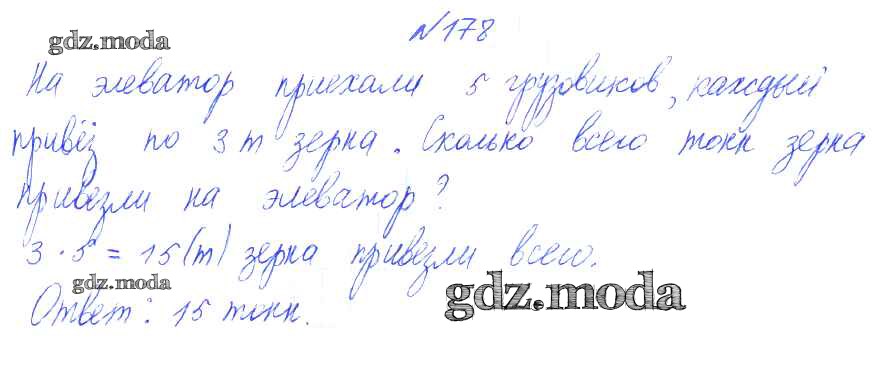 №178
gdz.moda
На элеватор приехали 5 грузовиков, каждый
привёз по 3 т зерна. Сколько всего тонн зерна
привезли на элеватор?
3 · 5 = 15 (т) зерна привезли всего.
gdz.moda
gdz.moda
Ответ: 15 тонн.